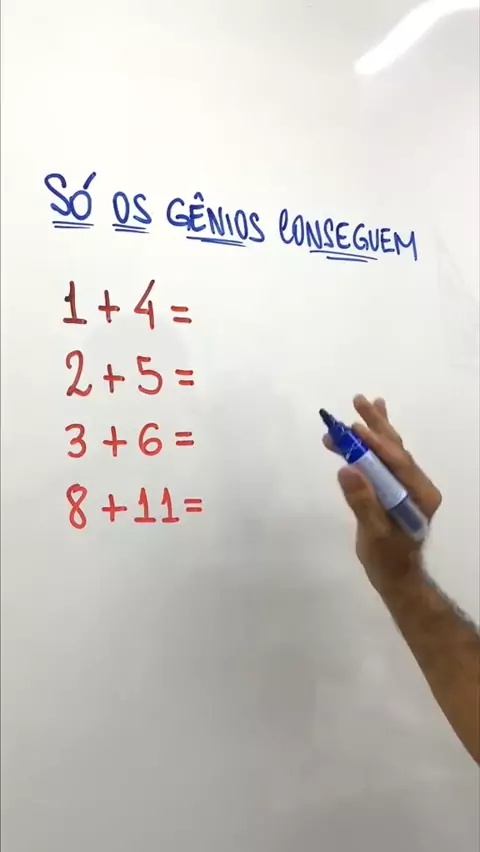 SÓ OS GÊNIOS CONSEGUEM
1 + 4 =
2 + 5 =
3 + 6 =
8 + 11 =